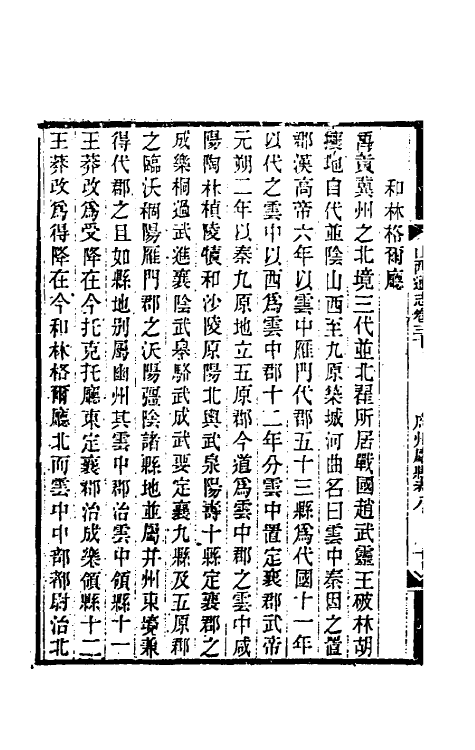 和林格爾廳
禹貢冀州之北境三代並北翟所居戰國趙武靈王破林胡
樓煩自代並陰山西至九原築城河曲名曰雲中秦因之置
郡漢高帝六年以雲中雁門代郡五十三縣爲代國十一年
以代之雲中以西爲雲中郡十二年分雲中置定襄郡武帝
元朔二年以秦九原地立五原郡今道爲雲中郡之雲中咸
陽陶林楨陵犢和沙陵原陽北輿武泉陽壽十縣定襄郡之
成樂桐過武進襄陰武皋駱武成武要定襄九縣及五原郡
之臨沃稒陽雁門郡之沃陽彊陰諸縣地並屬并州東境兼
得代郡之且如縣地别屬幽州其雲中郡治雲中領縣十一
王莽改爲受降在今托克托廳東定襄郡治成樂領縣十二
王莽改爲得降在今和林格爾廳北而雲中中部都尉治北
山西通志卷三十
府州廳縣考八